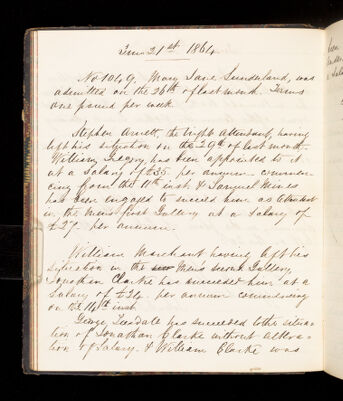 June 21st 1864
No 1049. Mary Jane Sunderland, was
admitted on the 26th of last month. Terms
one pound per week
Stephen Arnett, the Night Attendant, having
left his situation on the 29th of last month.
William Gregory has been appointed to it
at a Salary of £35. per annum commen-
cing from the 11th inst. & Samuel Mines
has been engaged to succeed him as Attendant
in the Mens first Gallery at a Salary of
£27. per annum.
William Marchant having left his
situation in the Mens second Gallery,
Jonathan Clarke has succeeded him at a
Salary of £26. per annum commencing
on the 14th inst.
George Teasdale has succeeded to the situa-
tion of Jonathan Clarke without altera-
tion of Salary. & William Clarke was